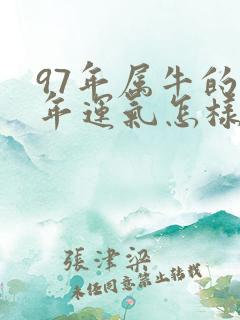 97年属牛的
年運氣怎樣
張津梁
未经同意禁止转载